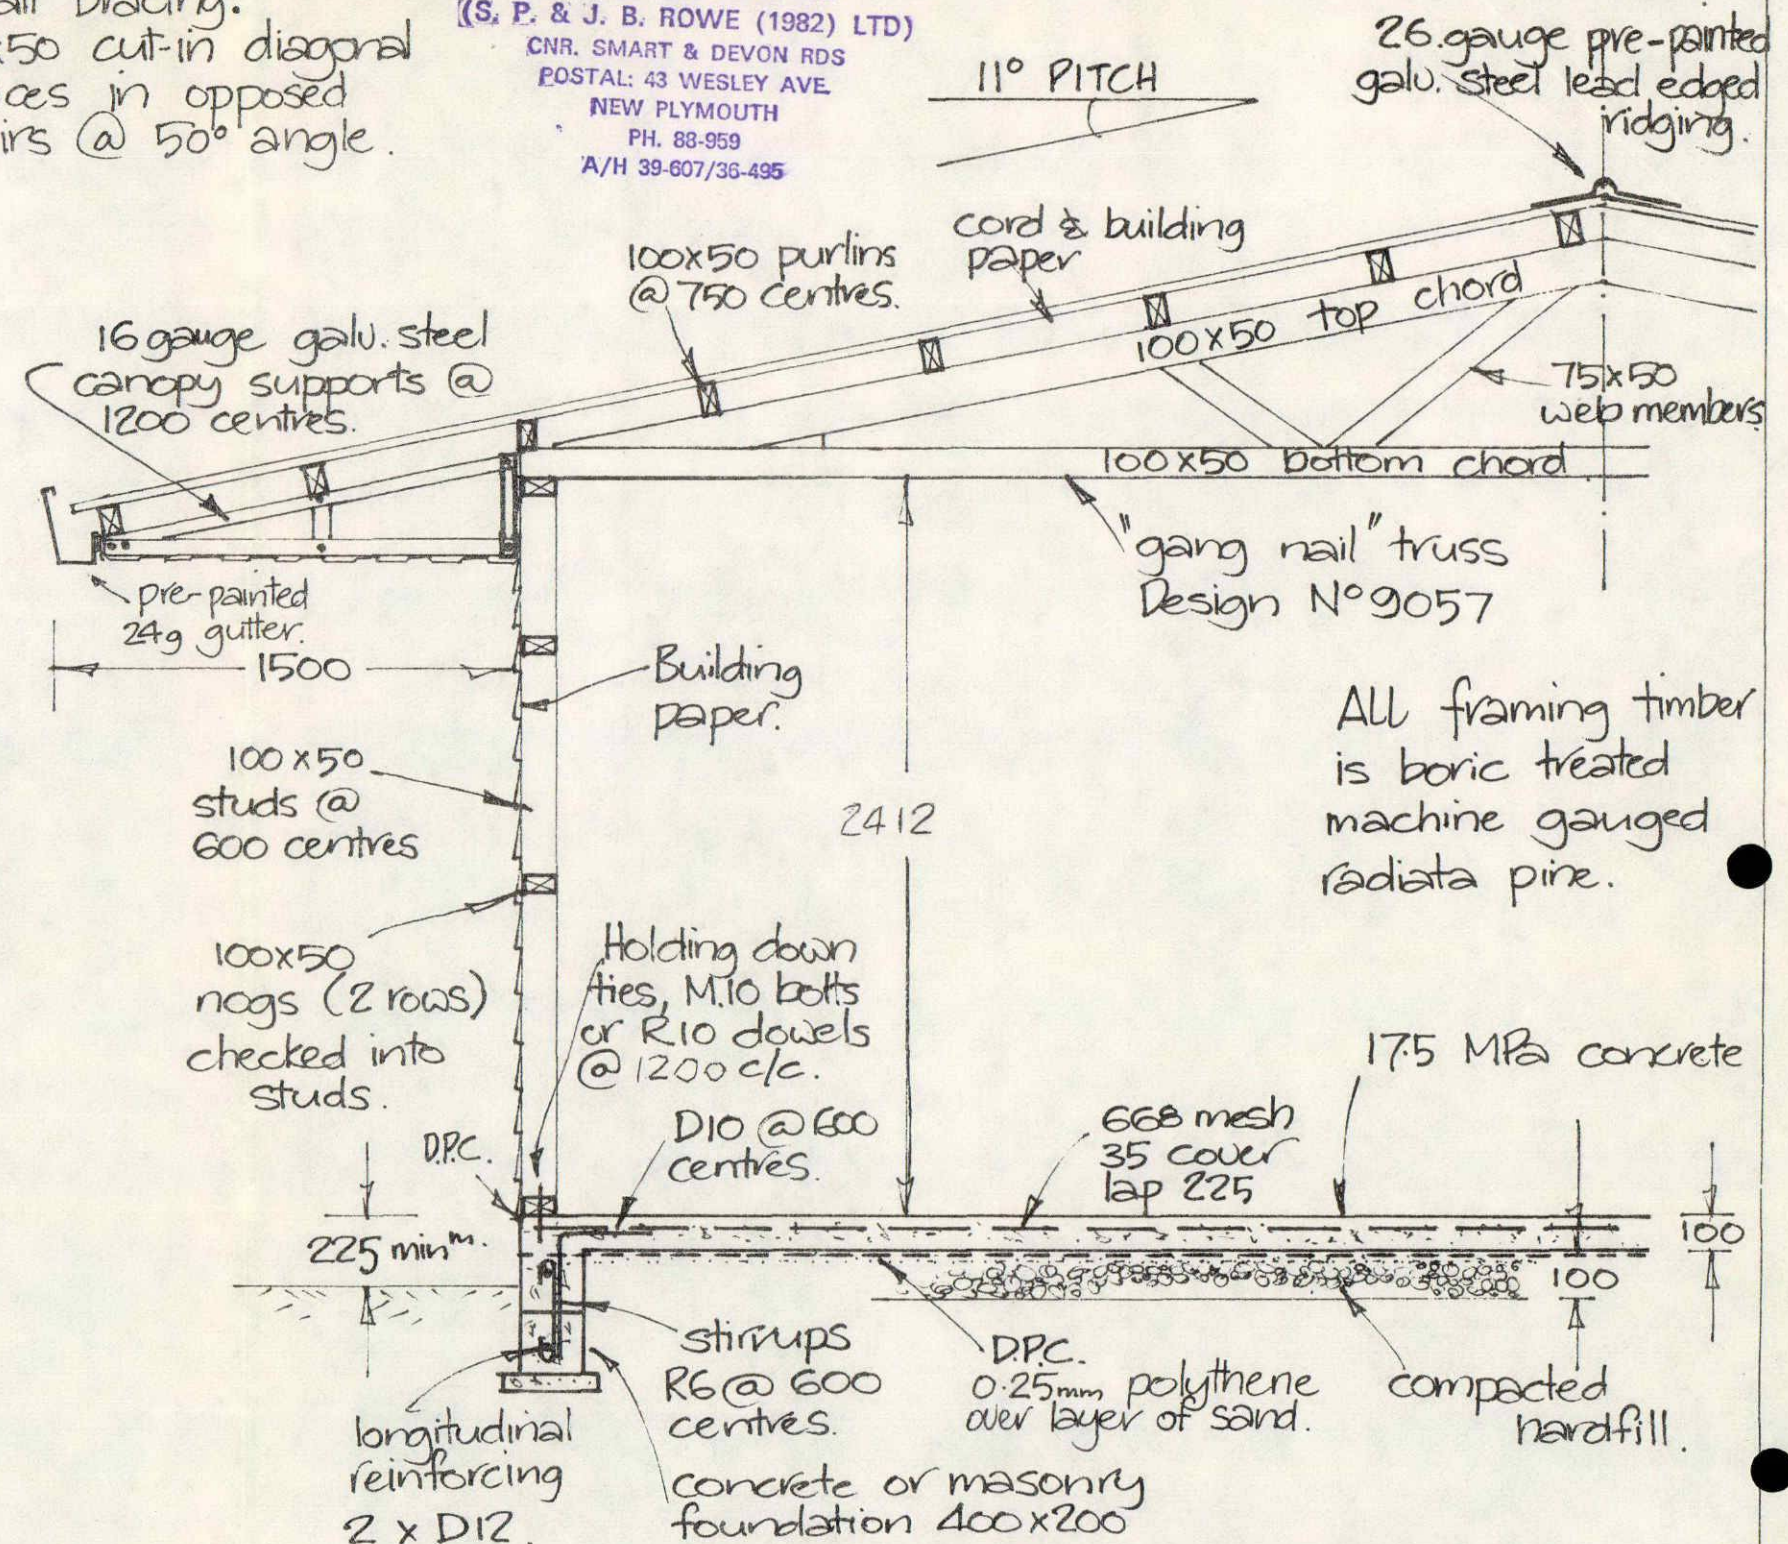 x50 cut-in diagonal
ces in opposed
irs @ 50° angle.
(S. P. & J. B. ROWE (1982) LTD)
CNR. SMART & DEVON RDS
POSTAL: 43 WESLEY AVE.
NEW PLYMOUTH
PH. 88-959
A/H 39-607/36-495
11° PITCH
26.gauge pre-painted
galv. steel lead edged
ridging.
100x50 purlins
@ 750 centres.
cord & building
paper
100x50 top chord
75x50
web members
16 gauge galv. steel
canopy supports @
1200 centres.
100x50 bottom chord
"gang nail" truss
Design N° 9057
pre-painted
24g gutter.
1500
Building
paper.
All framing timber
is boric treated
machine gauged
radiata pine.
100x50
studs @
600 centres
2412
100x50
nogs (2 rows)
checked into
studs.
Holding down
ties, M.10 bolts
or R10 dowels
@ 1200 c/c.
17.5 MPa concrete
D.P.C.
D10 @ 600
centres.
668 mesh
35 cover
lap 225
225 minᵐ.
100
100
stirrups
R6 @ 600
centres.
D.P.C.
0.25mm polythene
over layer of sand.
compacted
hardfill.
longitudinal
reinforcing
2 x D12.
concrete or masonry
foundation 400x200